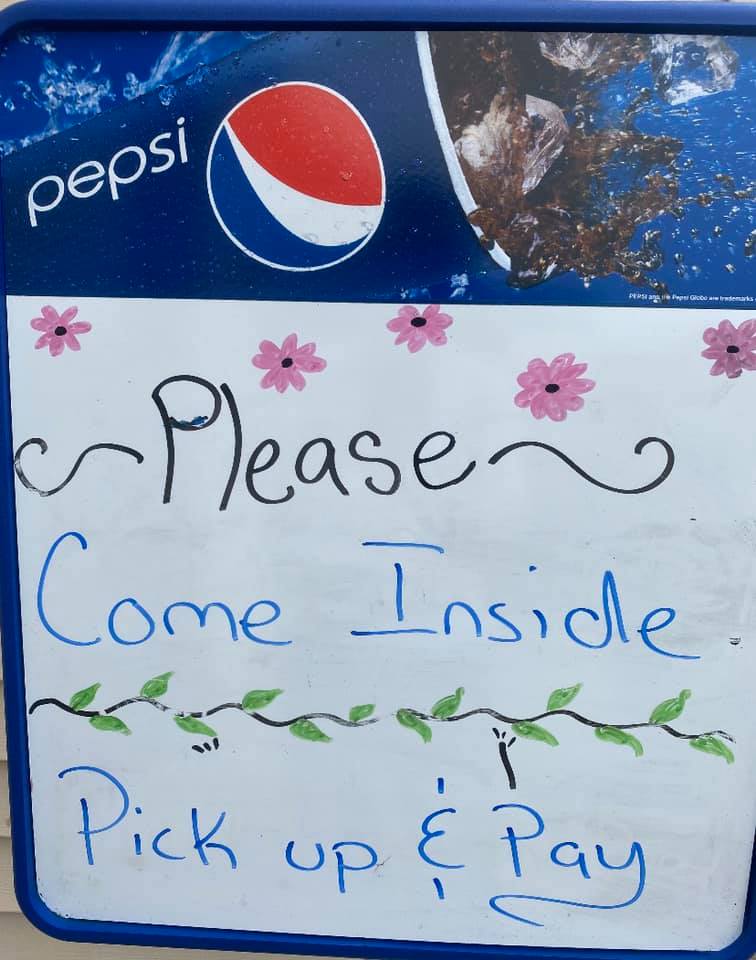 pepsi
PEPSI and the Pepsi Globe are trademarks
Please
Come Inside
Pick up & Pay